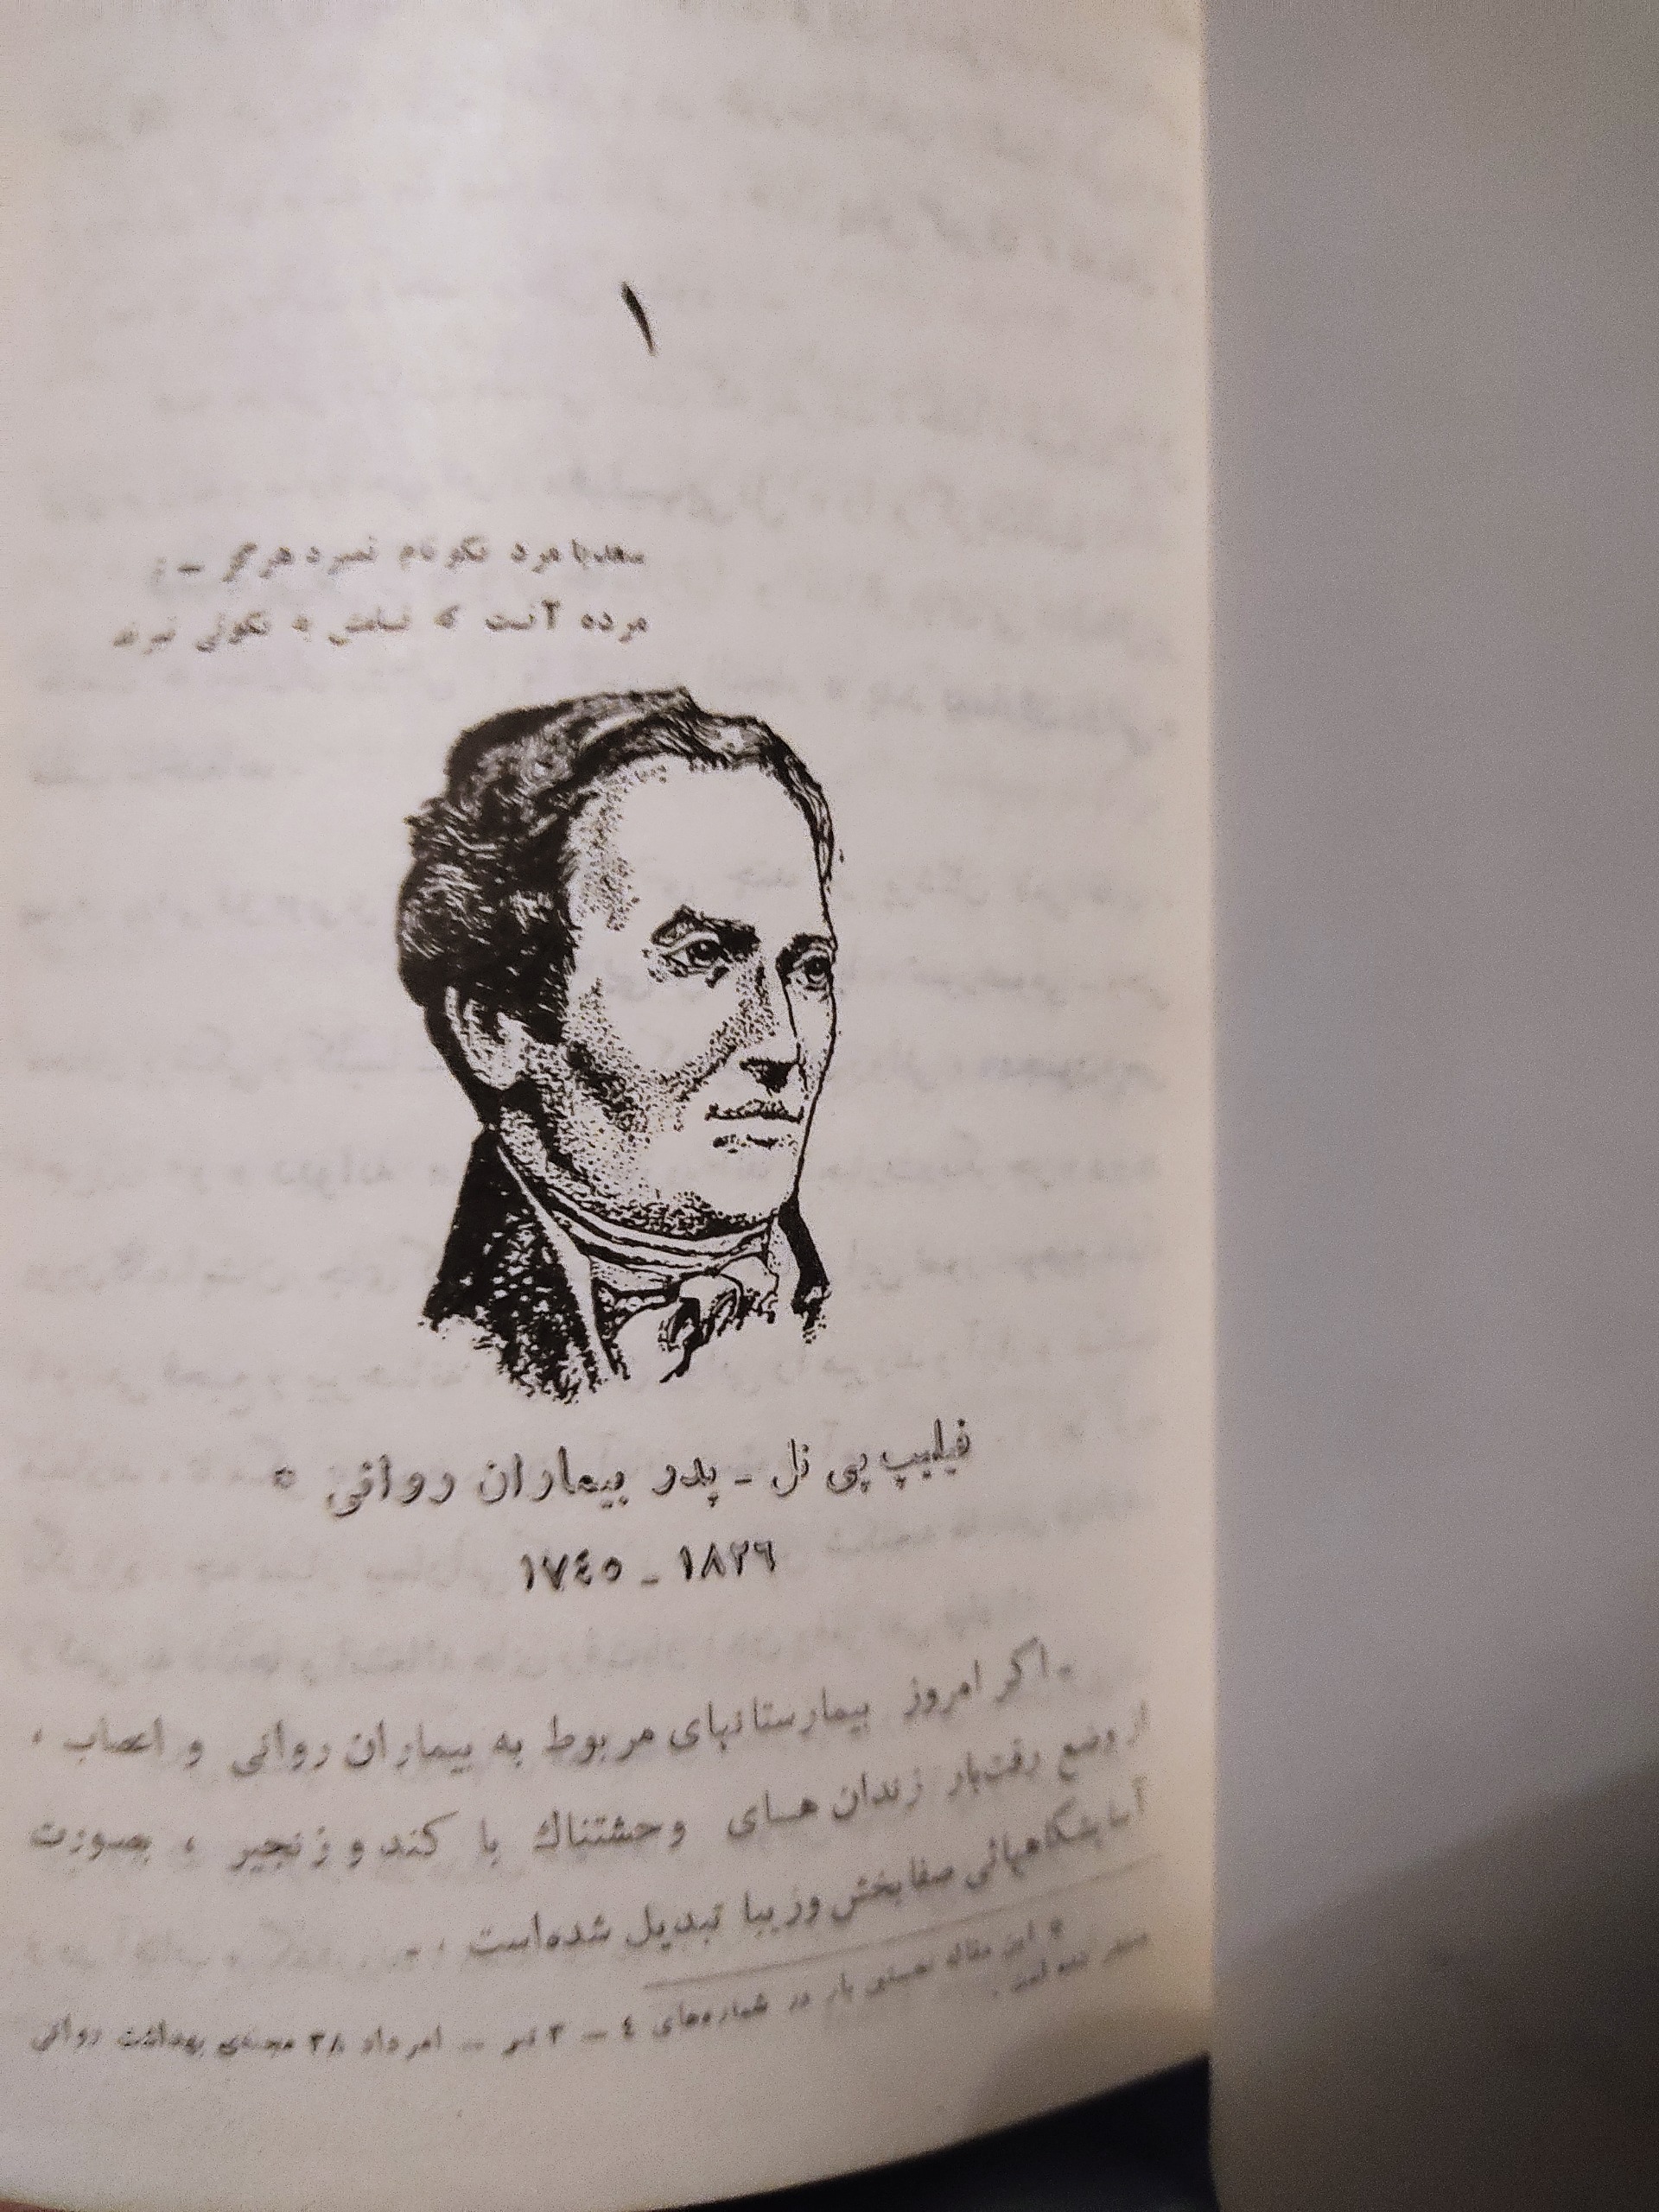 ۱
سعدیا مرد نکونام نمیرد هرگز –
مرده آنست که نامش به نکوئی نبرند
فیلیپ پی نل ـ پدر بیماران روانی *
۱۷٤٥ ـ ۱۸۲٦
اگر امروز بیمارستانهای مربوط به بیماران روانی و اعصاب ،
از وضع رقت‌بار زندان هـای وحشتناك با کند و زنجیر ، بصورت
آسایشگاههائی صفابخش و زیبا تبدیل شده‌است ،
* این مقاله نخستین بار در شماره‌های ٤ – ۳ تیر – امرداد ۳۸ مجله‌ی بهداشت روانی
منتشر شده است .